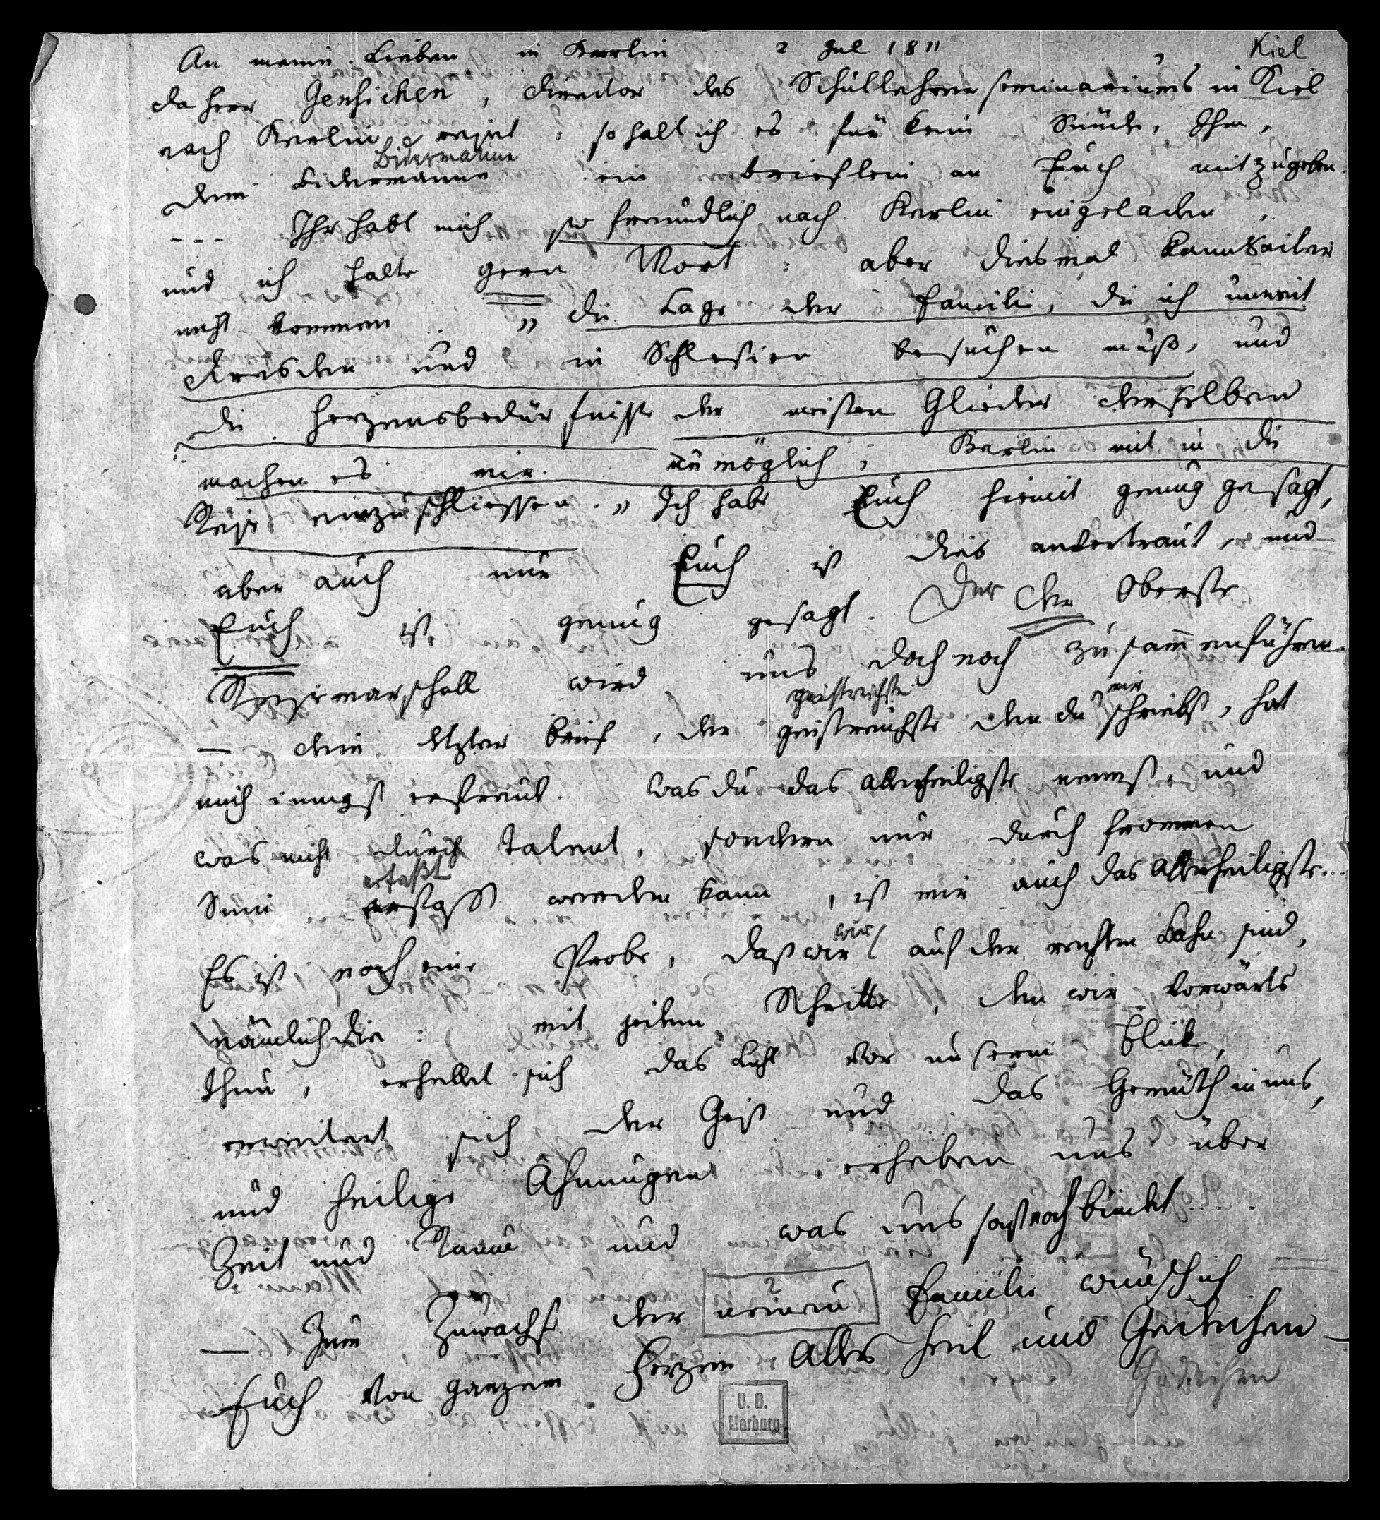 An meine Lieben in Berlin 2 Jul 1811 Kiel
da Herr Gensichen, Director des Schullehrerseminariums in Kiel
nach Berlin reist: so halt ich es für kein Sünde, Ihm,
Biedermanne
dem Biedermanne ein brieflein an Euch mitzugeben.
--- Ihr habt mich so freundlich nach Berlin eingeladen,
und ich halte gern Wort: aber diesmal kann
nicht kommen. „die Lage der Familie, die ich unweit
Dresden und in Schlesien besuchen muß, und
die Herzensbedürfnisse der meisten Glieder derselben
machen es mir unmöglich, Berlin mit in die
Reise einzuschliessen." Ich habe Euch hiemit genug gesagt,
aber auch nur Euch ist dies anvertraut, und
Euch ist genug gesagt. Der Der Oberste
Reisemarschall wird uns doch noch zusammenführen.
geistreichste mir
— dein letzter brief, der geistreichste den du schriebst, hat
mich innigst erfreut. Was du das Allerheiligste nennst, und
was nicht durch Talent, sondern nur durch frommen
erfaßt
Sinn erfasst werden kann, ist mir auch das Allerheiligste.
wir
Es ist noch eine Probe, daß wir auf der rechten Bahn sind,
nämlich die: mit jedem Schritte, den wir vorwärts
thun, erhellet sich das Licht vor unserm Blick,
erweitert sich der Geist und das Gemüth in uns,
und heilige Ahnungen erheben uns über
Zeit und Raum und was uns sonst noch bindet.
?
— Zum Zuwachse der neuen Familie wünsch ich
Euch von ganzem Herzen Alles Heil und Gedeihen —
Gedeihen
U. B.
Marburg